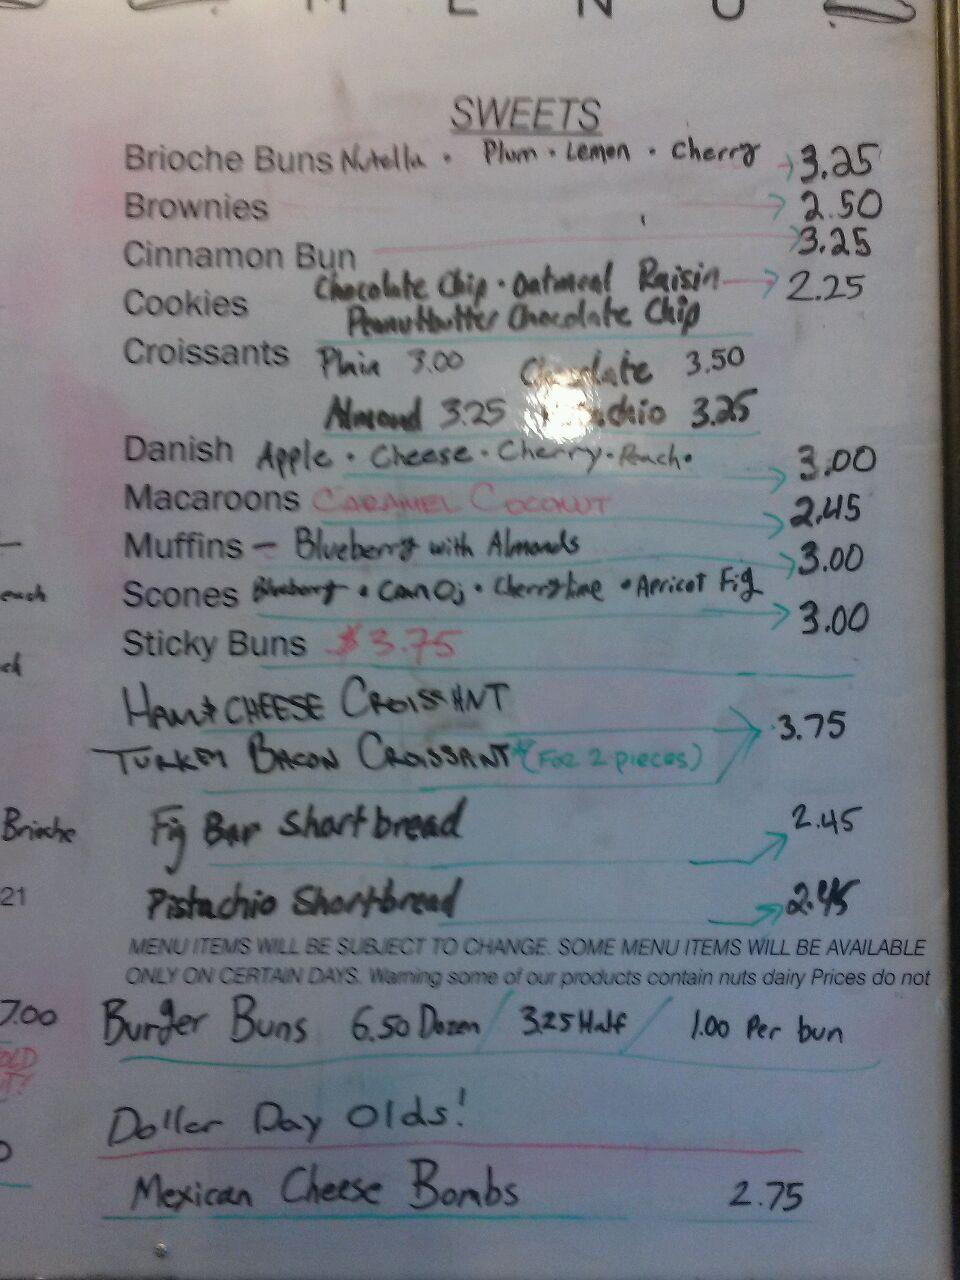 MENU
SWEETS
Brioche Buns Nutella · Plum · Lemon · Cherry → 3.25
Brownies → 2.50
Cinnamon Bun → 3.25
Cookies Chocolate Chip · Oatmeal Raisin → 2.25
Peanutbutter Chocolate Chip
Croissants Plain 3.00 Chocolate 3.50
Almond 3.25 Pistachio 3.25
Danish Apple · Cheese · Cherry · Peach · → 3.00
Macaroons CARAMEL COCONUT → 2.45
Muffins - Blueberry with Almonds → 3.00
Scones Blueberry · Cran Oj · Cherry lime · Apricot Fig → 3.00
Sticky Buns $3.75
HAM & CHEESE CROISSANT
TURKEY BACON CROISSANT * (FOR 2 PIECES) → 3.75
Fig Bar Shortbread → 2.45
Pistachio Shortbread → 2.45
MENU ITEMS WILL BE SUBJECT TO CHANGE. SOME MENU ITEMS WILL BE AVAILABLE
ONLY ON CERTAIN DAYS. Warning some of our products contain nuts dairy Prices do not
Burger Buns 6.50 Dozen / 3.25 Half / 1.00 Per bun
Dollar Day Olds!
Mexican Cheese Bombs 2.75
each
Brioche
21
7.00